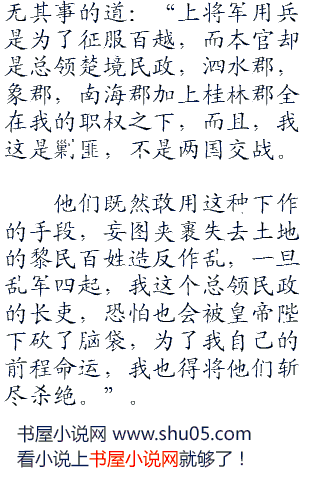 无其事的道：“上将军用兵
是为了征服百越，而本官却
是总领楚境民政，泗水郡，
象郡，南海郡加上桂林郡全
在我的职权之下，而且，我
这是剿匪，不是两国交战。
他们既然敢用这种下作
的手段，妄图夹裹失去土地
的黎民百姓造反作乱，一旦
乱军四起，我这个总领民政
的长吏，恐怕也会被皇帝陛
下砍了脑袋，为了我自己的
前程命运，我也得将他们斩
尽杀绝。”。
书屋小说网 www.shu05.com
看小说上书屋小说网就够了！